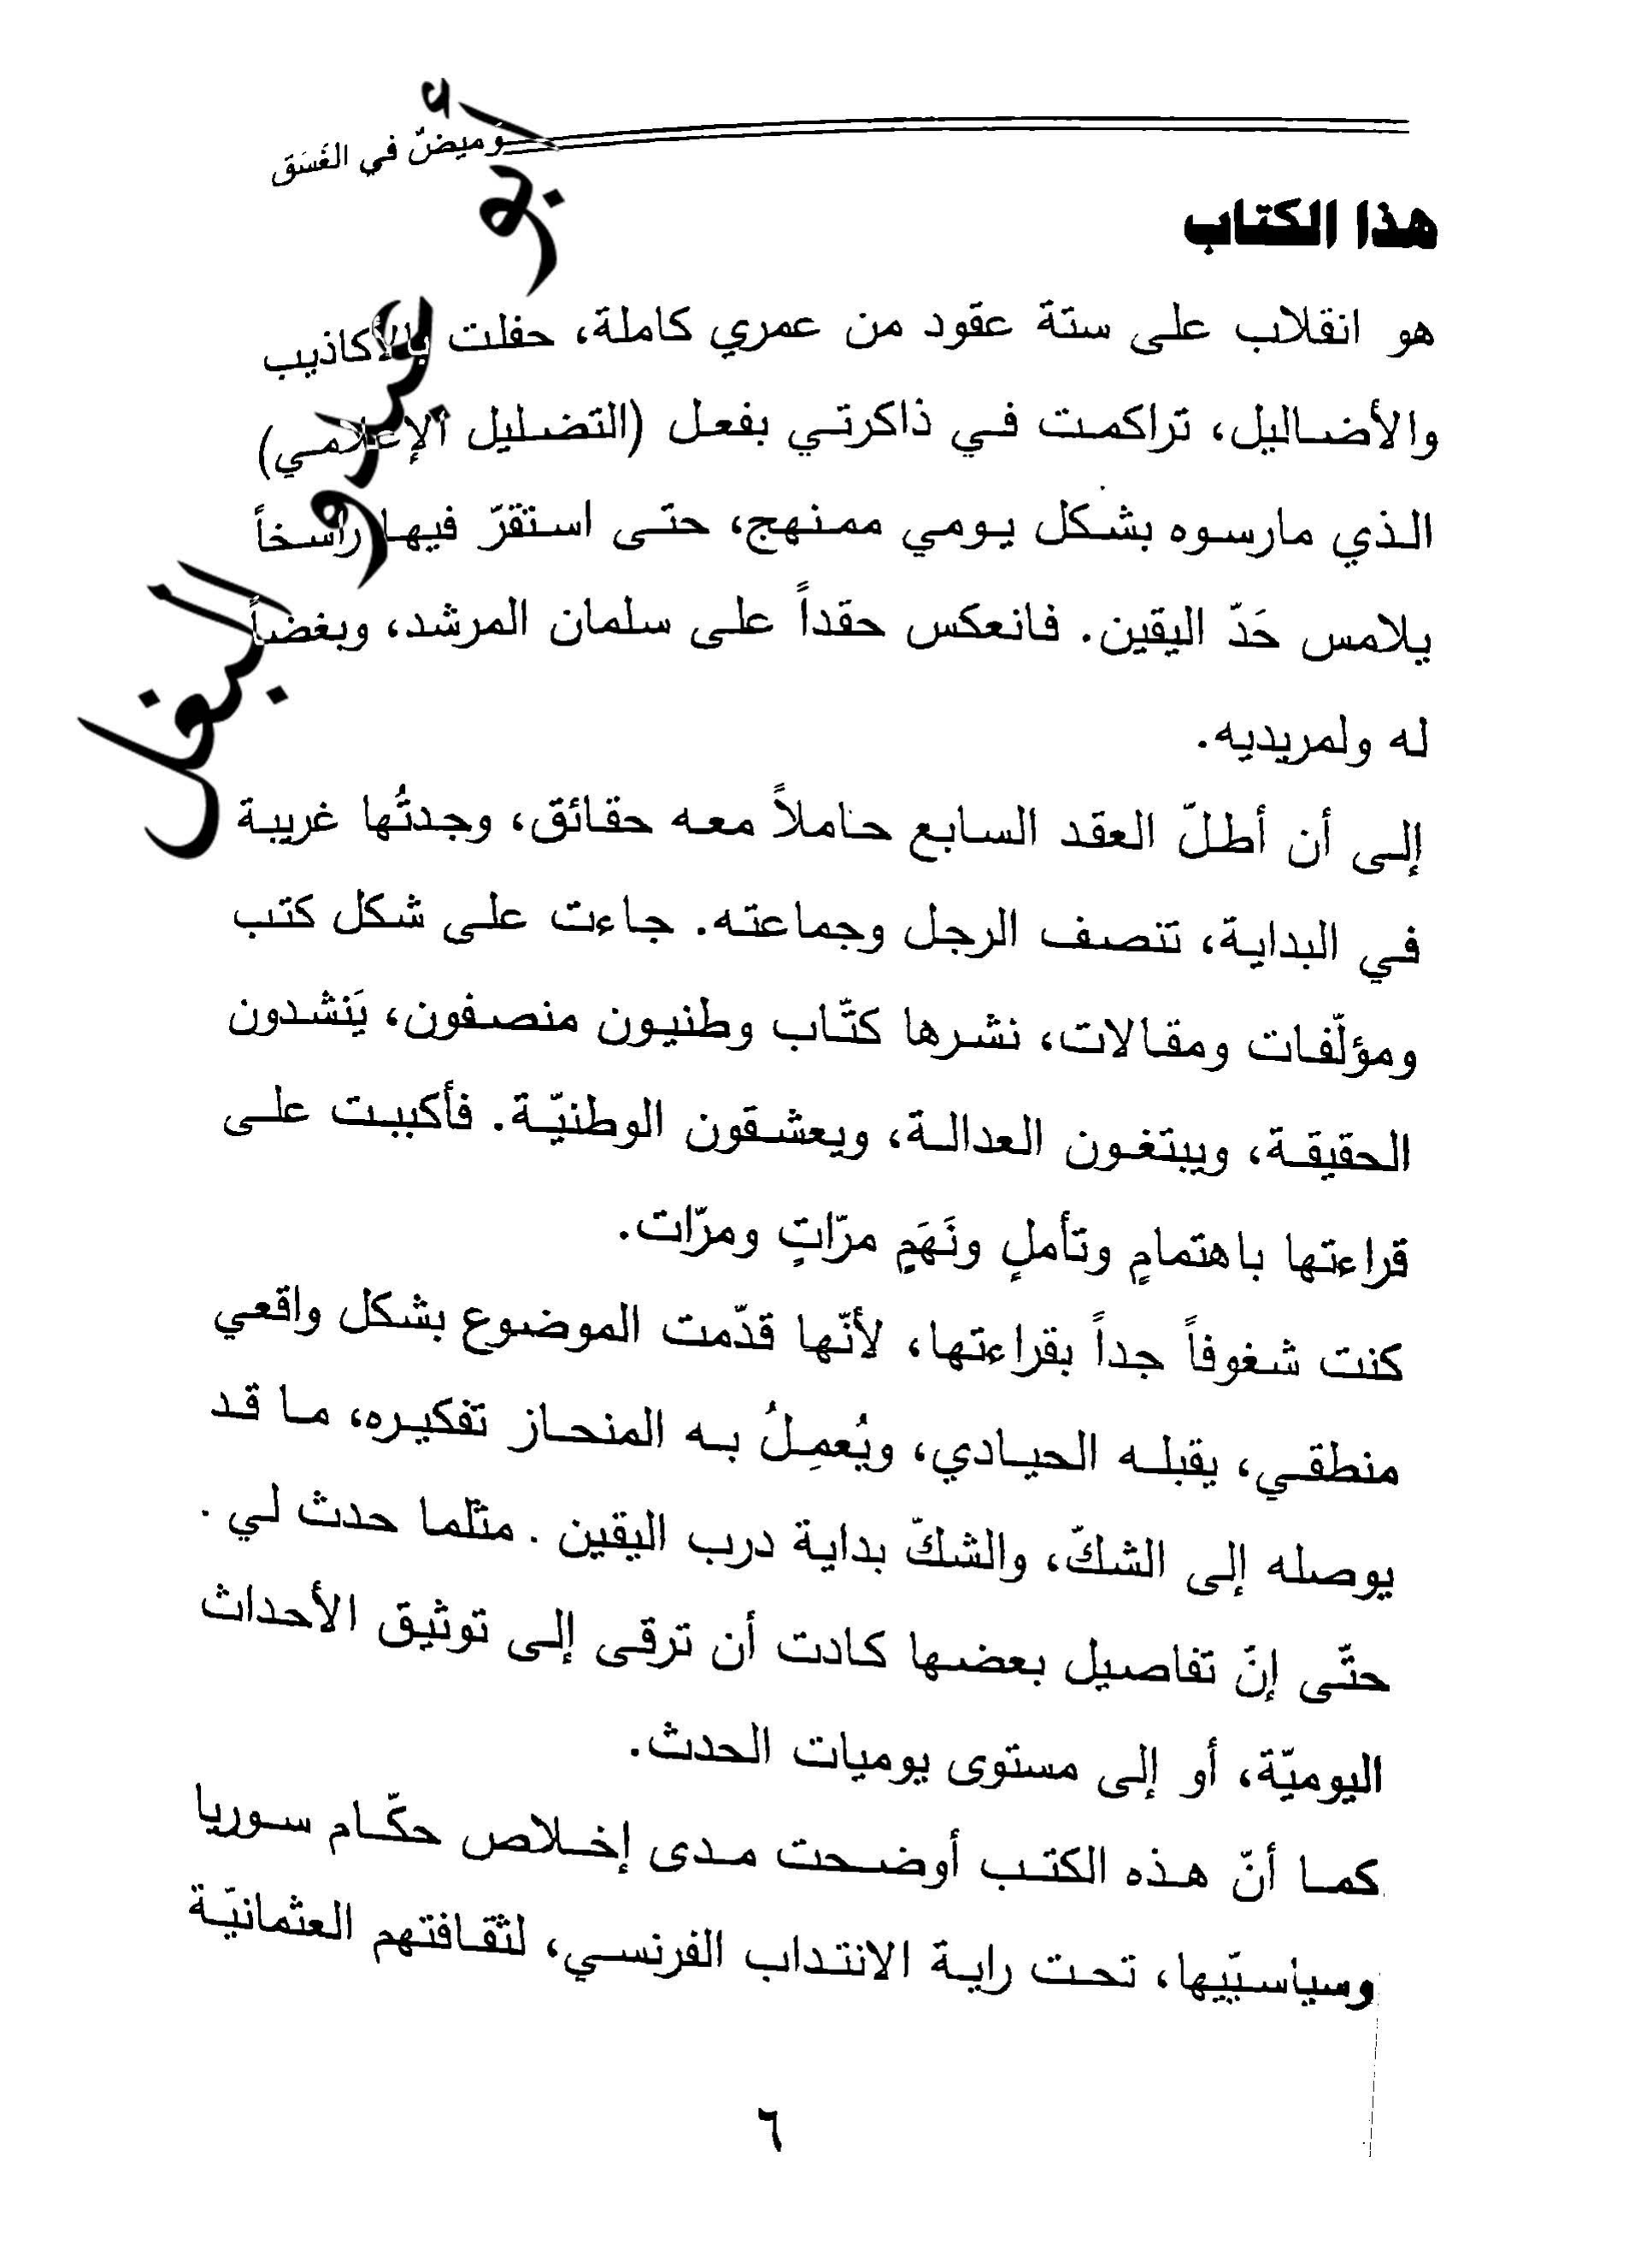 وَميضٌ في الغَسَق
هذا الكتاب
هو انقلاب على ستة عقود من عمري كاملة، حفلت بالأكاذيب
والأضاليل، تراكمت في ذاكرتي بفعل (التضليل الإعلامي)
الذي مارسوه بشكل يومي ممنهج، حتى استقرّ فيها راسخاً
يلامس حَدّ اليقين. فانعكس حقداً على سلمان المرشد، وبغضاً
له ولمريديه.
إلى أن أطلّ العقد السابع حاملاً معه حقائق، وجدتُها غريبة
في البداية، تنصف الرجل وجماعته. جاءت على شكل كتب
ومؤلّفات ومقالات، نشرها كتّاب وطنيون منصفون، يَنشدون
الحقيقة، ويبتغون العدالة، ويعشقون الوطنيّة. فأكببت على
قراءتها باهتمامٍ وتأملٍ ونَهَمٍ مرّاتٍ ومرّات.
كنت شغوفاً جداً بقراءتها، لأنّها قدّمت الموضوع بشكل واقعي
منطقي، يقبله الحيادي، ويُعمِلُ به المنحاز تفكيره، ما قد
يوصله إلى الشكّ، والشكّ بداية درب اليقين . مثلما حدث لي .
حتّى إنّ تفاصيل بعضها كادت أن ترقى إلى توثيق الأحداث
اليوميّة، أو إلى مستوى يوميات الحدث.
كما أنّ هذه الكتب أوضحت مدى إخلاص حكّام سوريا
وسياسيّيها، تحت راية الانتداب الفرنسي، لثقافتهم العثمانيّة
٦
أبو عبدو البغل